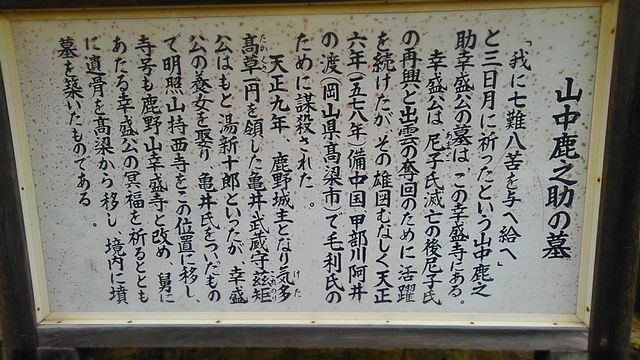 山中鹿之助の墓
「我に七難八苦を与へ給へ」
と三日月に祈ったという山中鹿之
助幸盛公の墓は、この幸盛寺にある。
幸盛公は、尼子氏滅亡の後尼子氏
の再興と出雲の奪回のために活躍
を続けたが、その雄図むなしく天正
六年(一五七八年)備中国、甲部川阿井
の渡(岡山県高梁市)で毛利氏の
ために謀殺された。
天正九年、鹿野城主となり気多
高草一円を領した亀井武蔵守茲矩
公はもと湯新十郎といったが、幸盛
公の養女を娶り、亀井氏をついだもの
で明照山持西寺をこの位置に移し、
寺号も鹿野山幸盛寺と改め、舅に
あたる幸盛公の冥福を祈るととも
に遺骨を高梁から移し、境内に墳
墓を築いたものである。